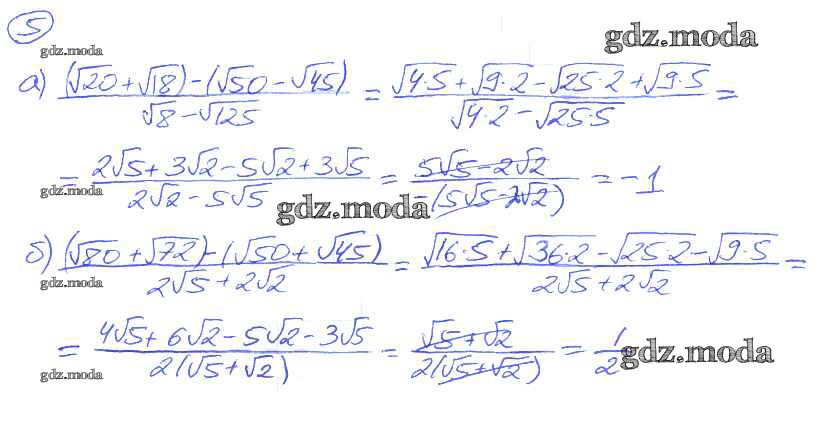 5
gdz.moda
gdz.moda
а) ((√20 + √18) - (√50 - √45)) / (√8 - √125) = (√4·5 + √9·2 - √25·2 + √9·5) / (√4·2 - √25·5) =
= (2√5 + 3√2 - 5√2 + 3√5) / (2√2 - 5√5) = (5√5 - 2√2) / (-(5√5 - 2√2)) = -1
gdz.moda
gdz.moda
б) ((√80 + √72) - (√50 + √45)) / (2√5 + 2√2) = (√16·5 + √36·2 - √25·2 - √9·5) / (2√5 + 2√2) =
gdz.moda
= (4√5 + 6√2 - 5√2 - 3√5) / (2(√5 + √2)) = (√5 + √2) / (2(√5 + √2)) = 1/2
gdz.moda
gdz.moda